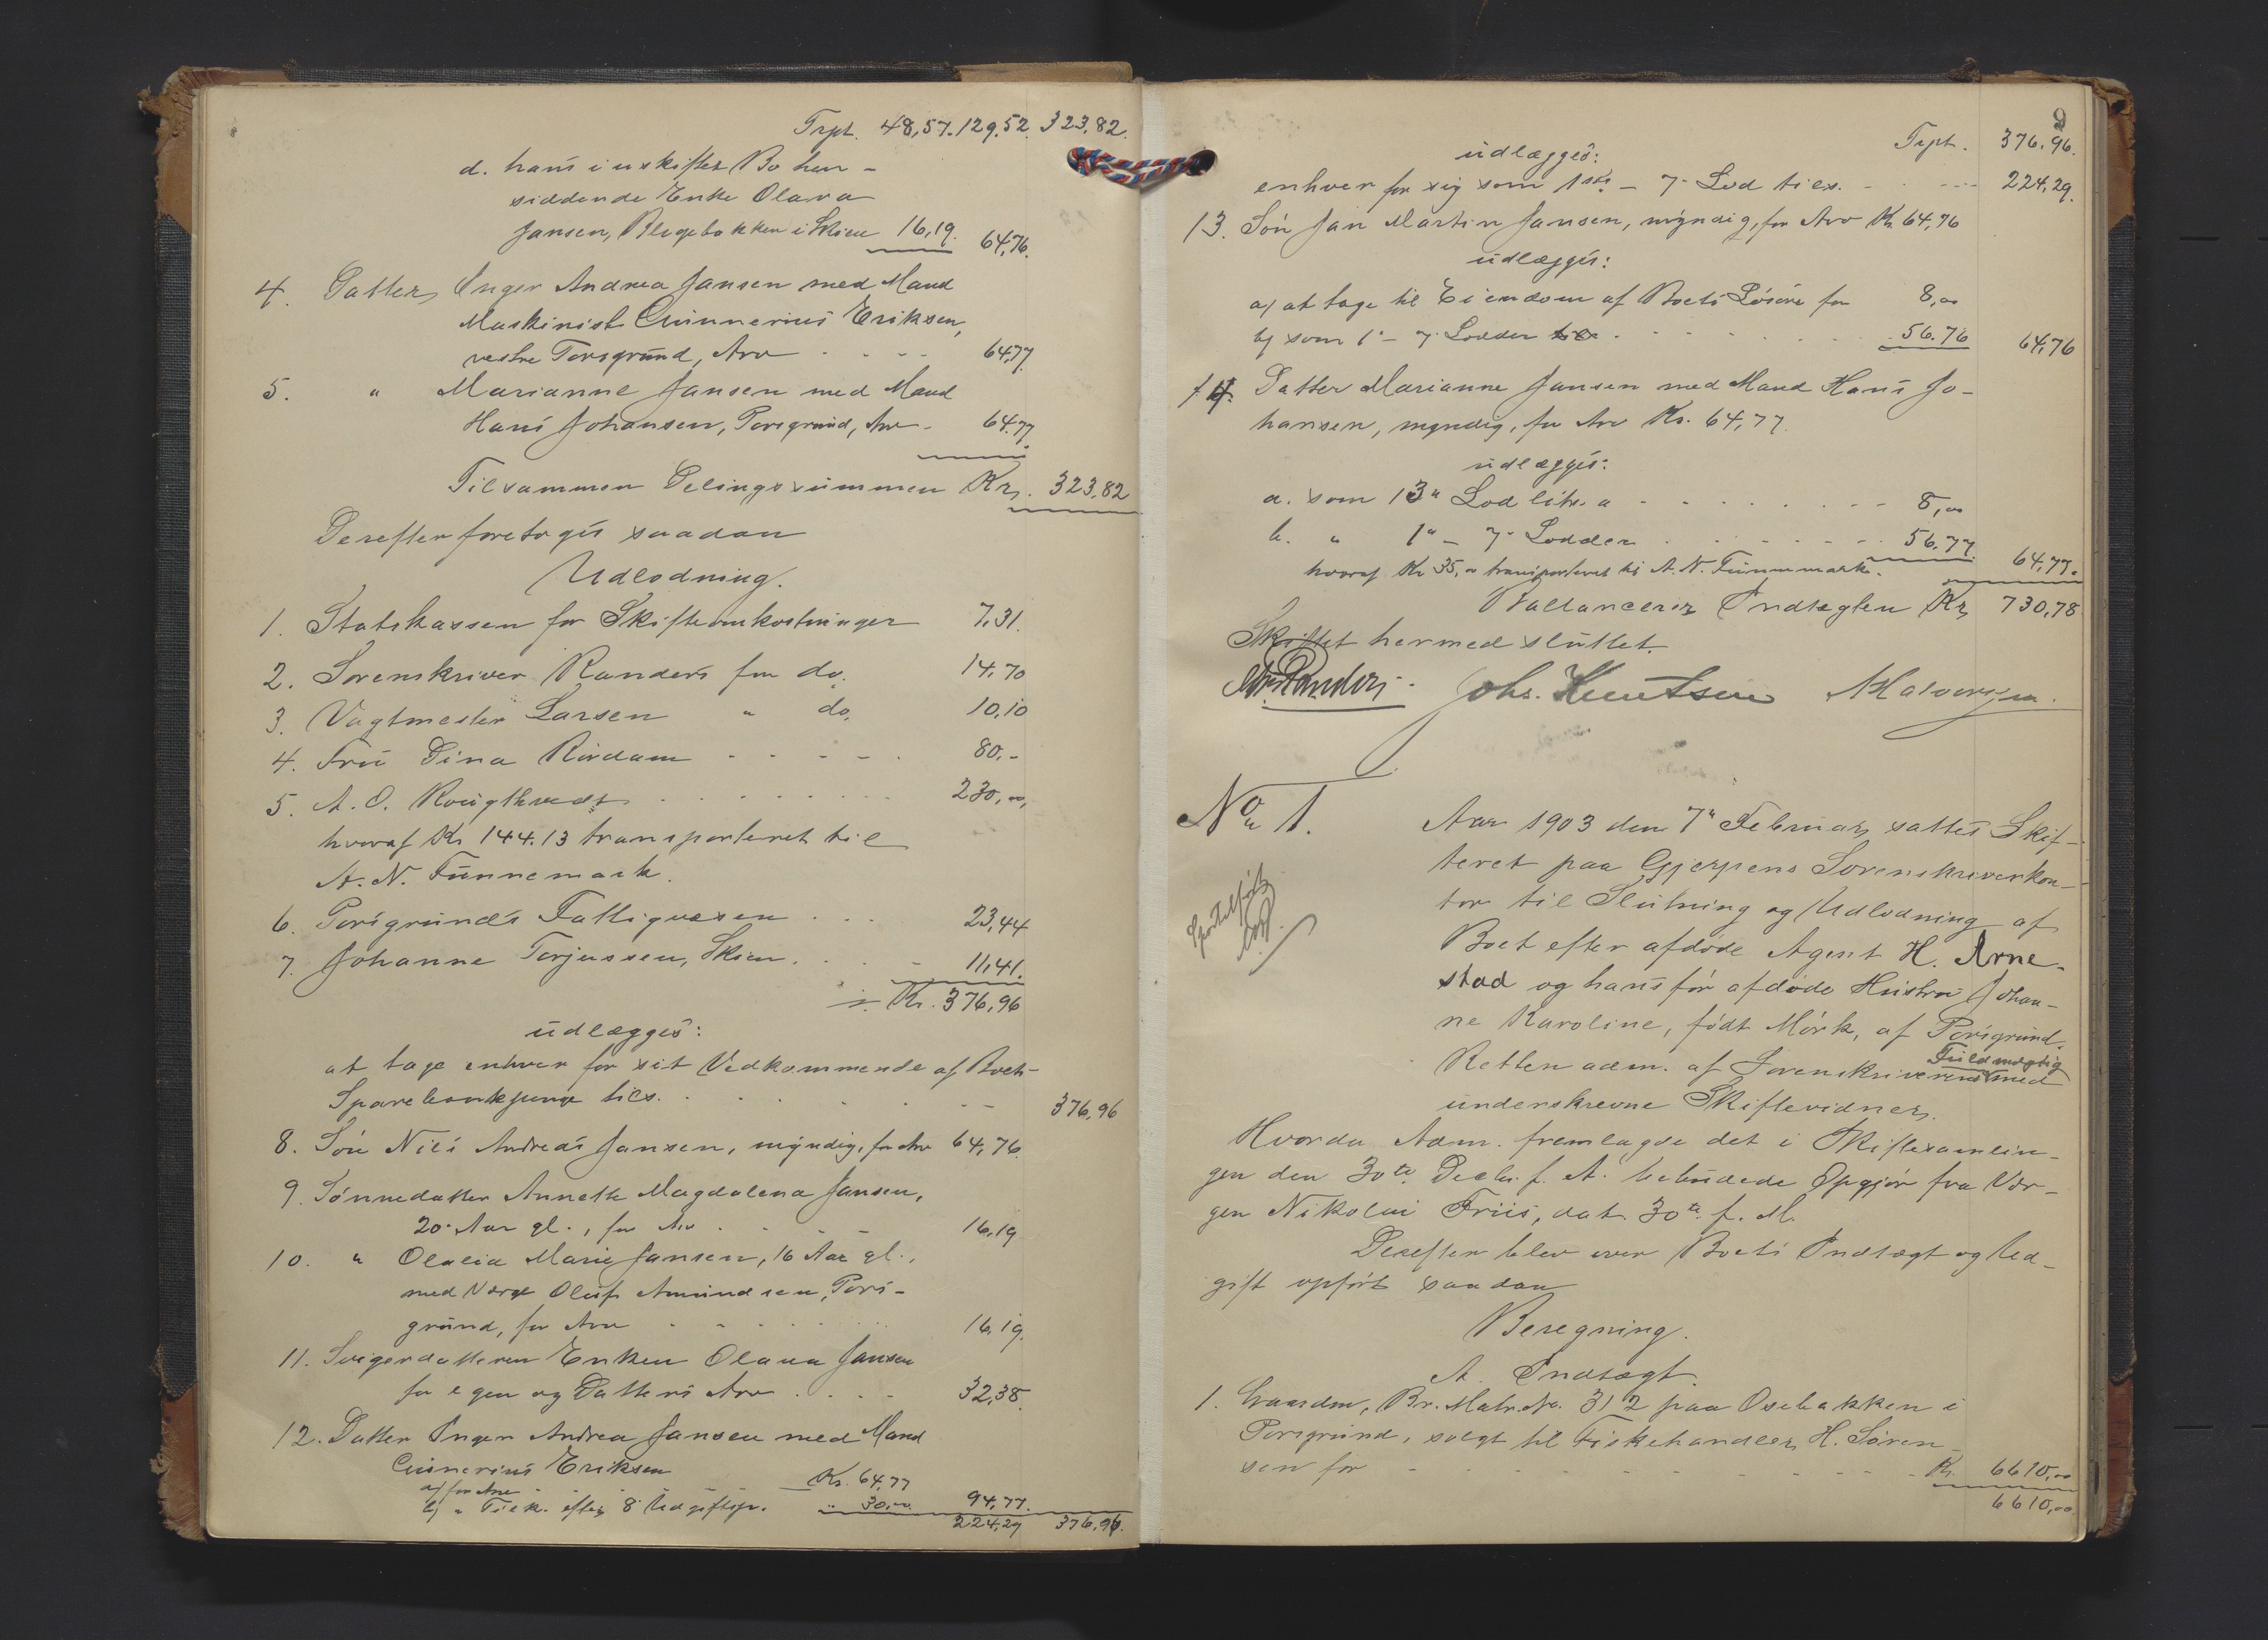 Trpt. 48,57. 129.52. 323.82.
d. hans i uskiftet Bo hen-
siddende Enke Olava
Jansen, Blegebakken i Skien 16,19. 64,76.
4. Datter Inger Andrea Jansen med Mand
Maskinist Gunnerius Eriksen,
vestre Porsgrund, Arv 64,77.
5. " Marianne Jansen med Mand
Hans Johansen, Porsgrund, Arv - 64.77.
Tilsammen Delingssummen Kr. 323,82
Derefter foretoges saadan
Udlodning.
1. Statskassen for Skifteomkostninger 7,31.
2. Sorenskriver Randers for do. 14,70
3. Vagtmester Larsen " do. 10,10
4. Fru Dina Rördam 80,-
5. A. O. Rougthvedt 230,00,
hvoraf Kr 144.13 transporteret til
A. N. Funnemark.
6. Porsgrunds Fattigvæsen 23,44
7. Johanne Torjussen, Skien. 11,41.
Kr. 376,96
udlægges:
at tage enhver for sit Vedkommende af Boets
Sparebankpenge tils. 376,96
8. Sön Nils Andreas Jansen, myndig, for Arv 64,76.
9. Sönnedatter Annette Magdalena Jansen,
20 Aar gl., for Arv 16,19
10. " Olalia Marie Jansen, 16 Aar gl.,
med Værge Oluf Amundsen, Pors-
grund, for Arv 16,19.
11. Svigerdatteren Enken Olava Jansen
for egen og Datters Arv 32,38.
12. Datter Inger Andrea Jansen med Mand
Gunnerius Eriksen
a) for Arv Kr. 64,77
b) " Tilk. efter 8 Udgiftsp. " 30,00. 94,77.
224,29 376,96.
9
Trpt. 376,96.
udlægges:
enhver for sig som 1ste - 7. Lod tils. 224,29.
13. Sön Jan Martin Jansen, myndig, for Arv Kr. 64,76
udlægges:
a) at tage til Eiendom af Boets Lösöre for 8,00
b) som 1. - 7. Lodder 56.76 64,76
14. Datter Marianne Jansen med Mand Hans Jo-
hansen, myndig, for Arv Kr. 64,77.
udlægges:
a. som 13" Lod litr. a 8,00
b. " 1" - 7. Lodder 56,77.
hvoraf Kr 35,00 transporteret til A. N. Funnemark. 64,77.
Ballancerer Indtægten Kr. 730,78
Skiftet hermed sluttet.
Randers. Johs. Knutsen Halvorsen.
No 1. Aar 1903 den 7" Februar sattes Skif-
teret paa Gjerpens Sorenskriverkon-
tor til Slutning og Udlodning af
Boet efter afdöde Agent H. Arne-
stad og hans för afdöde Hustru Johan-
ne Karoline, födt Mörk, af Porsgrund.
Retten adm. af Sorenskriverens Fuldmægtig med
underskrevne Skiftevidner.
Hvorda Adm. fremlagde det i Skiftesamlin-
gen den 30te Decbr. f. A. bebudede Opgjör fra Vær-
gen Nikolai Friis, dat. 30te f. M.
Derefter blev over Boets Indtægt og Ud-
gift opfört saadan
Beregning.
A. Indtægt.
1. Gaarden, Br. Matr. No. 312 paa Osebakken i
Porsgrund, solgt til Fiskehandler H. Sören-
sen for Kr. 6610,00
6610,00